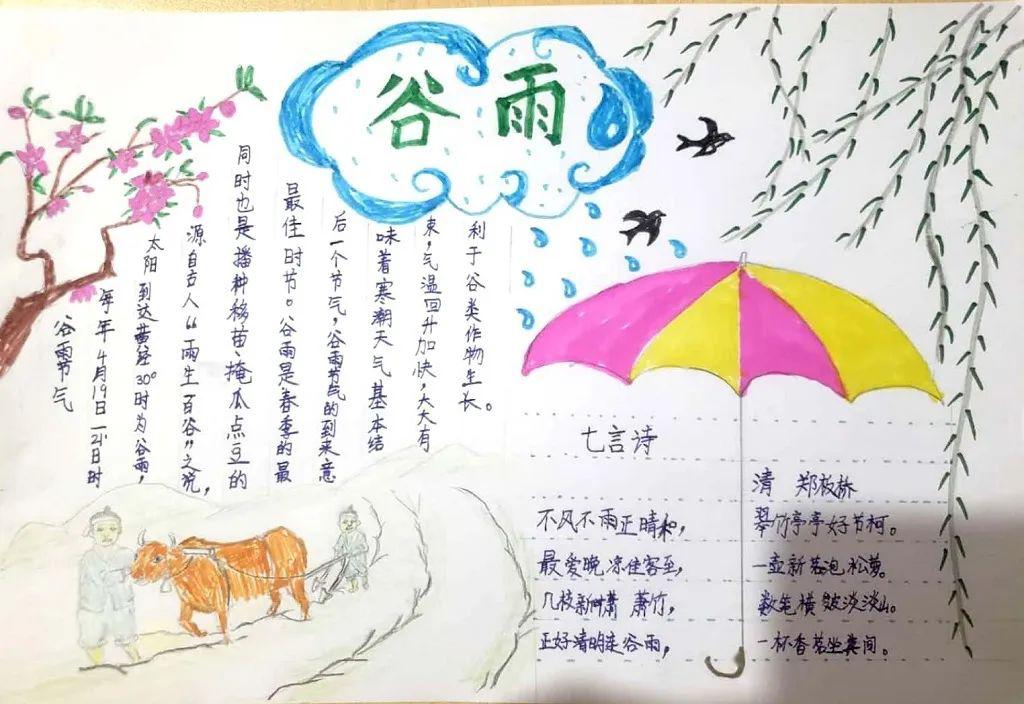 谷雨
谷雨节气
每年4月19日—21日时
太阳到达黄经30°时为谷雨,
源自古人“雨生百谷”之说,
同时也是播种移苗、掩瓜点豆的
最佳时节。谷雨是春季的最
后一个节气,谷雨节气的到来意
味着寒潮天气基本结
束,气温回升加快,大大有
利于谷类作物生长。
七言诗
清 郑板桥
不风不雨正晴和, 翠竹亭亭好节柯。
最爱晚凉佳客至, 一壶新茗泡松萝。
几枝新叶萧 萧竹, 数笔横皴淡淡山。
正好清明连谷雨, 一杯香茗坐其间。